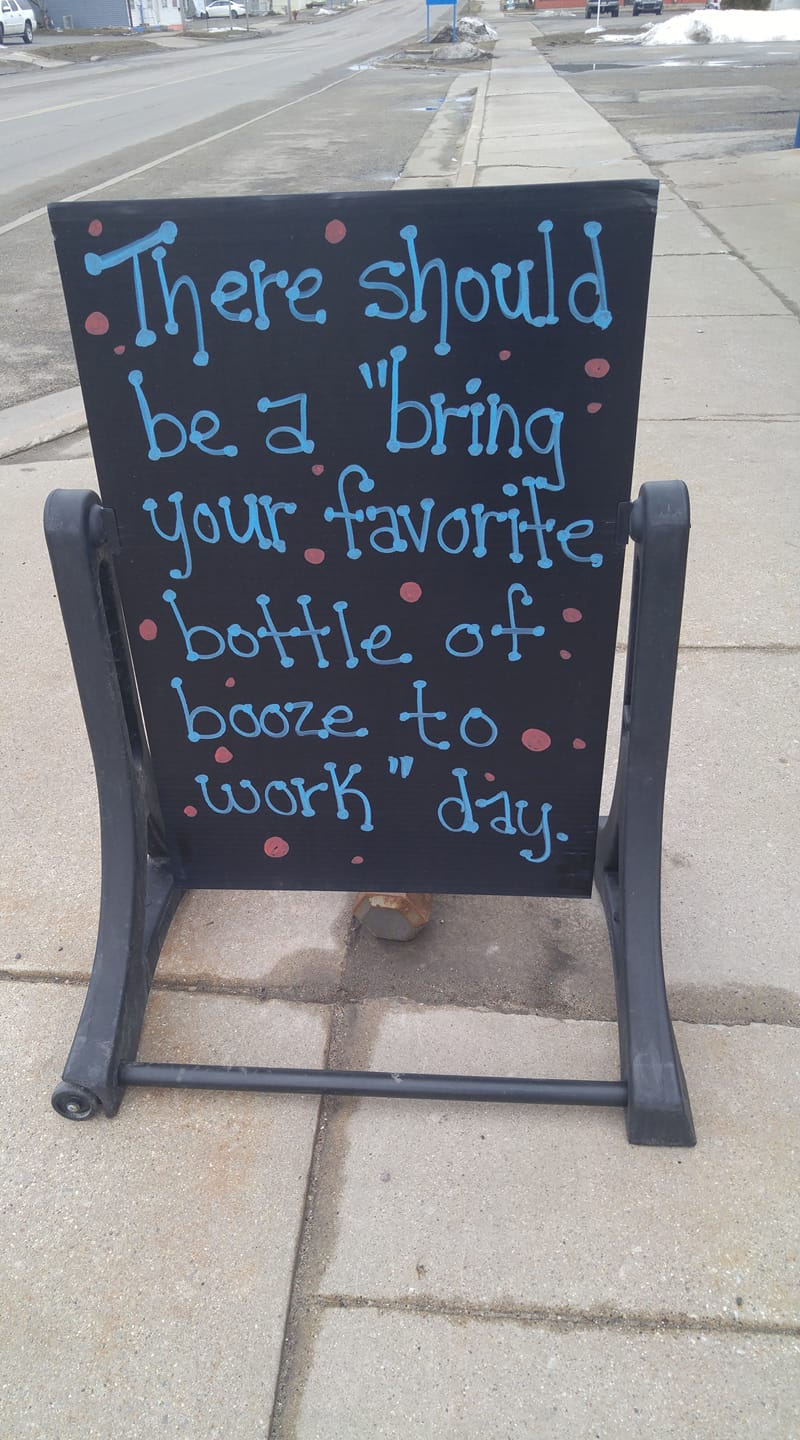 There should
be a "bring
your favorite
bottle of
booze to
work" day.